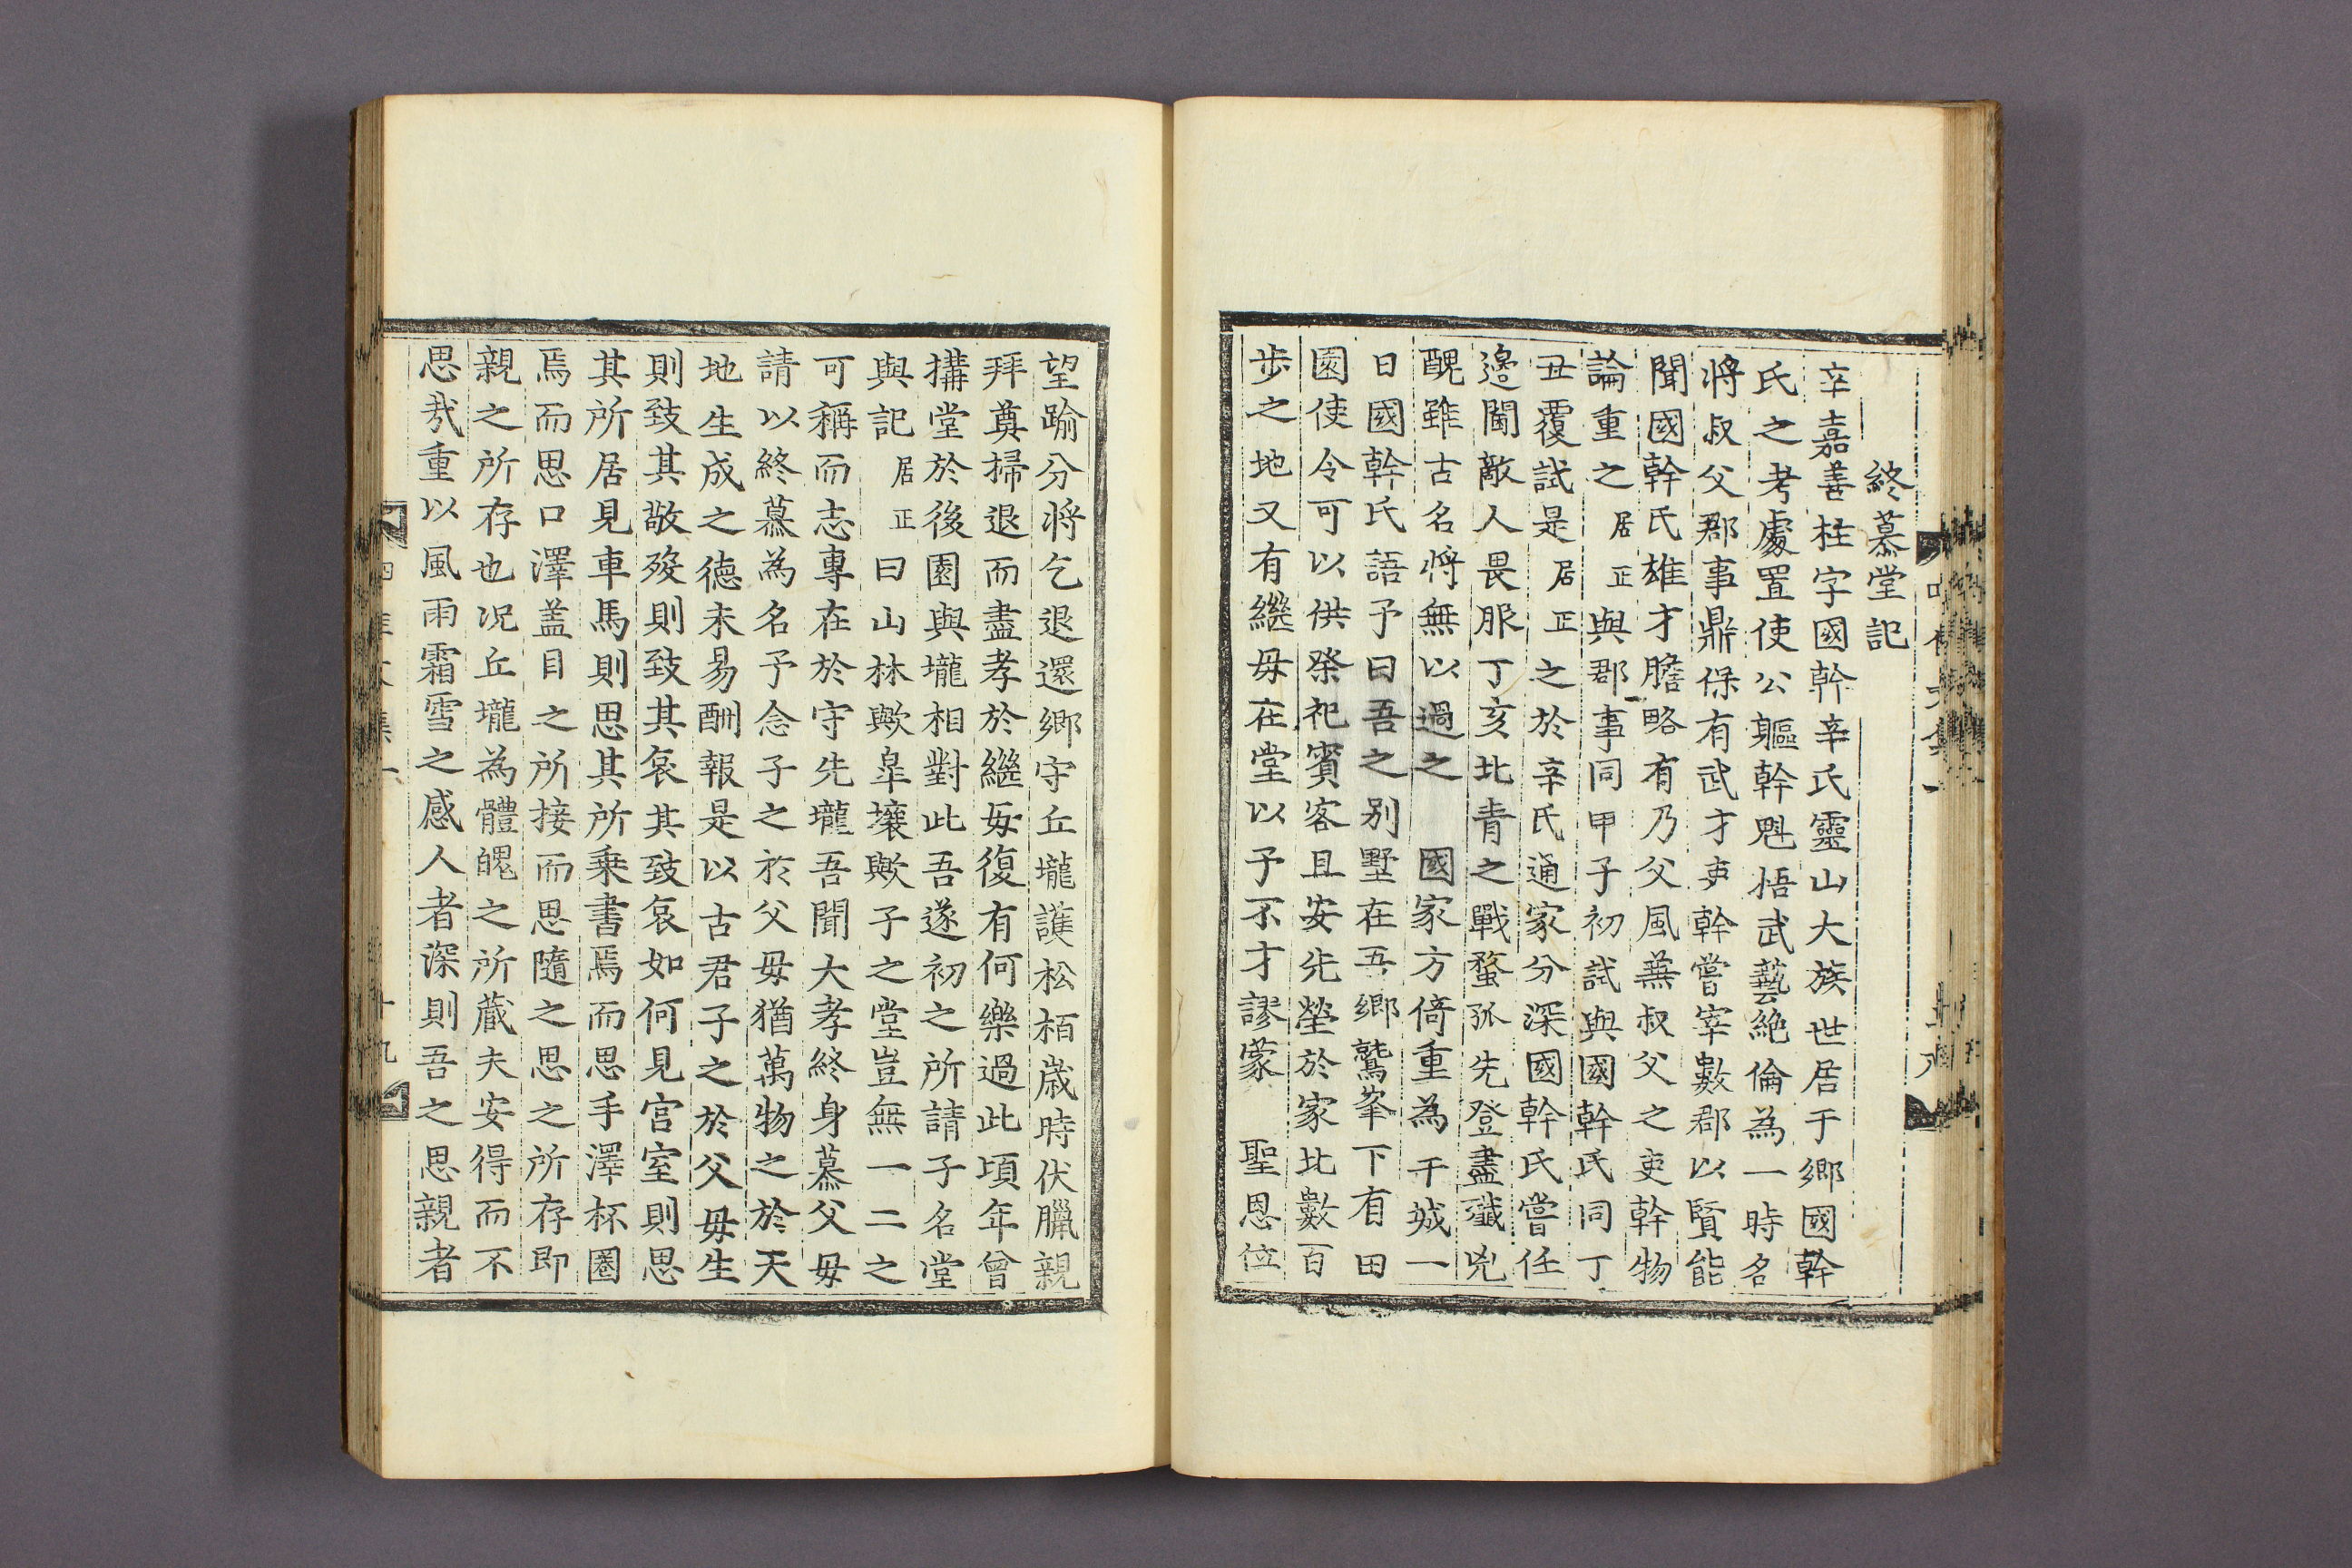 終慕堂記
辛嘉善柱字國幹辛氏靈山大族世居于鄉國幹
氏之考處置使公軀幹魁梧武藝絶倫為一時名
將叔父郡事鼎保有武才吏幹嘗宰數郡以賢能
聞國幹氏雄才膽略有乃父風兼叔父之吏幹物
論重之居正與郡事同甲子初試與國幹氏同丁
丑覆試是居正之於辛氏通家分深國幹氏嘗任
邊閫敵人畏服丁亥北青之戰蝥弧先登盡殲兇
醜雖古名將無以過之 國家方倚重為干城一
日國幹氏語予曰吾之别墅在吾鄉鷲峯下有田
園使令可以供祭祀賓客且安先塋於家北數百
步之地又有繼母在堂以予不才謬蒙 聖恩位
望踰分將乞退還鄉守丘壠護松栢歲時伏臘親
拜奠掃退而盡孝於繼母復有何樂過此頃年曾
搆堂於後園與壠相對此吾遂初之所請子名堂
與記居正曰山林歟皐壤歟子之堂豈無一二之
可稱而志專在於守先壠吾聞大孝終身慕父母
請以終慕為名予念子之於父母猶萬物之於天
地生成之德未易酬報是以古君子之於父母生
則致其敬歿則致其哀其致哀如何見宮室則思
其所居見車馬則思其所乗書焉而思手澤杯圈
焉而思口澤盖目之所接而思隨之思之所存即
親之所存也况丘壠為體魄之所蔵夫安得而不
思㦲重以風雨霜雪之感人者深則吾之思親者